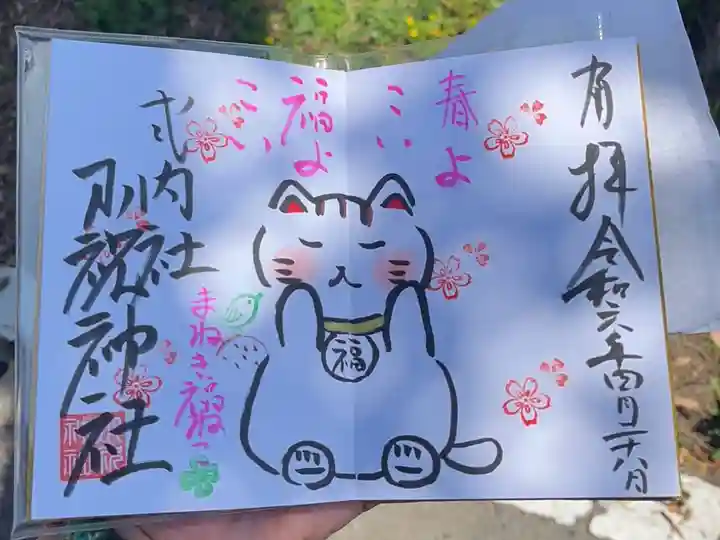 拝
令和六年四月二十八日
春よ
こい
福よ
こい
福
式内社
祝神社
まねき福ねこ